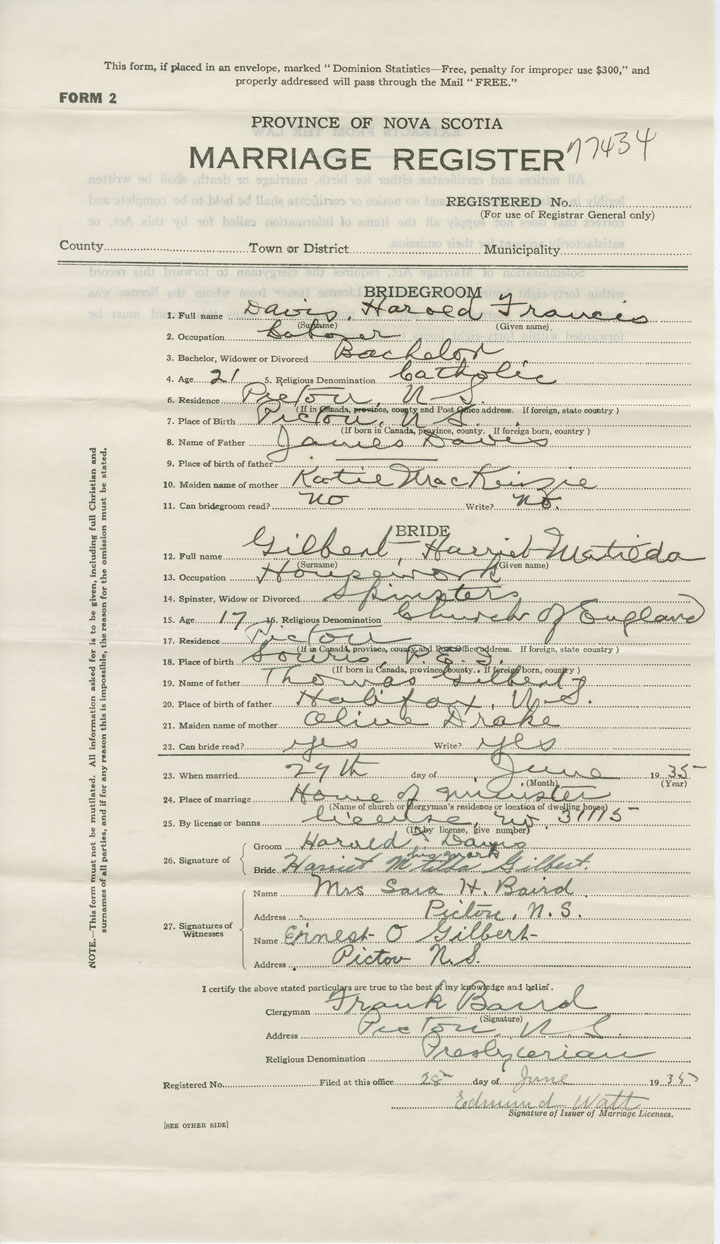 This form, if placed in an envelope, marked "Dominion Statistics—Free, penalty for improper use $300," and
properly addressed will pass through the Mail "FREE."
FORM 2
PROVINCE OF NOVA SCOTIA
MARRIAGE REGISTER 77434
REGISTERED No.
(For use of Registrar General only)
County Town or District Municipality
BRIDEGROOM
1. Full name Davis, Harold Francis
(Surname) (Given name)
2. Occupation Laborer
3. Bachelor, Widower or Divorced Bachelor
4. Age 21 5. Religious Denomination Catholic
6. Residence Pictou, N.S.
(If in Canada, province, county and Post Office address. If foreign, state country)
7. Place of Birth Pictou, N.S.
(If born in Canada, province, county. If foreign born, country)
8. Name of Father James Davis
9. Place of birth of father
10. Maiden name of mother Katie MacKenzie
11. Can bridegroom read? No Write? No.
BRIDE
12. Full name Gilbert, Harriet Matilda
(Surname) (Given name)
13. Occupation Housework
14. Spinster, Widow or Divorced Spinster
15. Age 17 16. Religious Denomination Church of England
17. Residence Pictou
(If in Canada, province, county and Post Office address. If foreign, state country)
18. Place of birth Souris, P.E.I.
(If born in Canada, province, county. If foreign born, country)
19. Name of father Thomas Gilbert
20. Place of birth of father Halifax, N.S.
21. Maiden name of mother Olive Drake
22. Can bride read? yes Write? yes
23. When married 27th day of June 1935
(Month) (Year)
24. Place of marriage Home of Minister
(Name of church or clergyman's residence or location of dwelling house)
25. By license or banns license, no 37175
(If by license, give number)
26. Signature of Groom Harold Davis
his mark
Bride Harriet Matilda Gilbert.
27. Signatures of Witnesses
Name Mrs Sara H. Baird
Address Pictou, N.S.
Name Ernest O Gilbert
Address Pictou N.S.
I certify the above stated particulars are true to the best of my knowledge and belief.
Clergyman Frank Baird
(Signature)
Address Pictou, N.S.
Religious Denomination Presbyterian
Registered No. Filed at this office 28 day of June 1935
Edmund Watt
Signature of Issuer of Marriage Licenses.
[SEE OTHER SIDE]
NOTE.—This form must not be mutilated. All information asked for is to be given, including full Christian and
surnames of all parties, and if for any reason this is impossible, the reason for the omission must be stated.